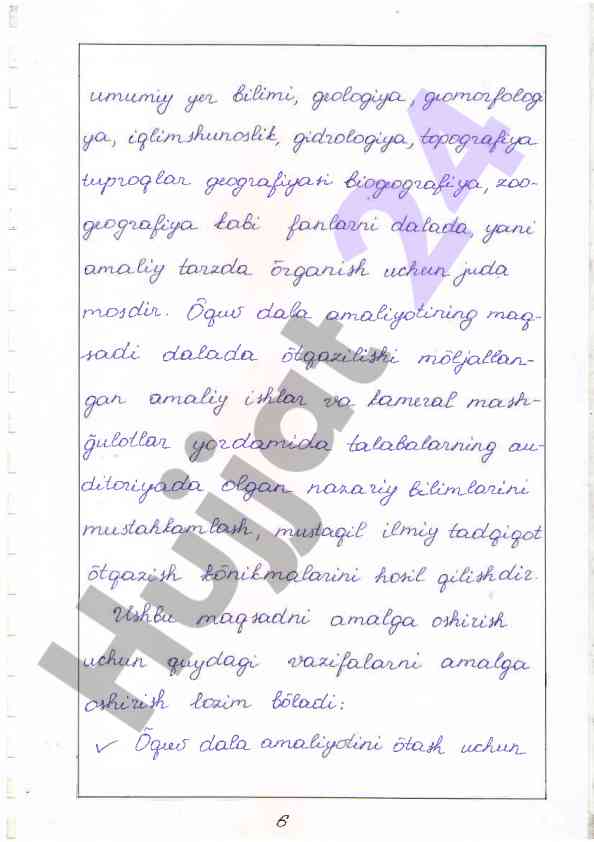 umumiy yer bilimi, geologiya, geomorfologi
ya, iqlimshunoslik, gidrologiya, topografiya
tuproqlar geografiyasi biogeografiya, zoo-
geografiya kabi fanlarni dalada, yani
amaliy tarzda õrganish uchun juda
mosdir. Õquv dala amaliyotining maq-
sadi dalada õtqazilishi mõljallan-
gan amaliy ishlar va kameral mash-
g̃ulotlar yordamida talabalarning au-
ditoriyada olgan nazariy bilimlarini
mustahkamlash, mustaqil ilmiy tadqiqot
õtqazish kõnikmalarini hosil qilishdir.
Ushbu maqsadni amalga oshirish
uchun quydagi vazifalarni amalga
oshirish lozim bõladi:
✓ Õquv dala amaliyotini õtash uchun
6
Hujjat 24